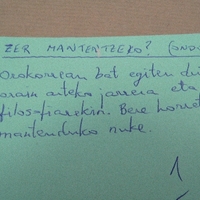 ZER MANTENTZEKO? (ONDO
Orokorrean bat egiten du
orain arteko jarrera eta
filosofiarekin. Bere horret
mantenduko nuke.
1